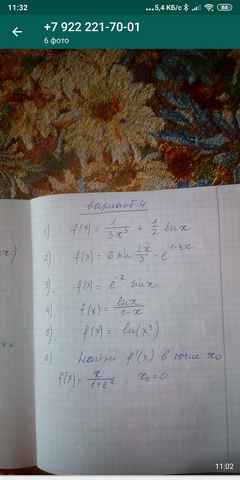 11:32 ...5,4 КБ/с 86
+7 922 221-70-01
6 фото
вариант 4
1) f(x) = 1/(3x³) + 1/2 ln x
2) f(x) = 6 sin 2x/3 - e^(1-3x)
3) f(x) = e^(-x) sin x
4) f(x) = ln x/(1-x)
5) f(x) = ln(x³)
6) Найти f'(x) в точке x₀
f(x) = x/(1+e^x), x₀=0
11:02